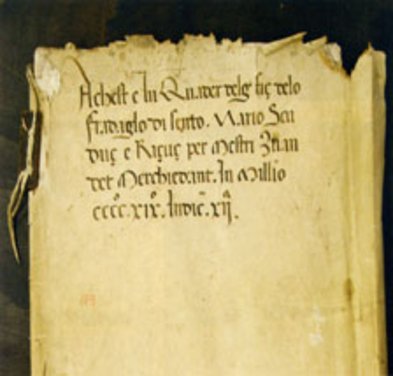 Achest e lu Quader delg fiç delo
fradaglo di sento. Mario Scu
duç e Riçuç per Mestri Zuan
det Merchiedant. In Millio
cccc°.xix°. Indic̄. xijª.